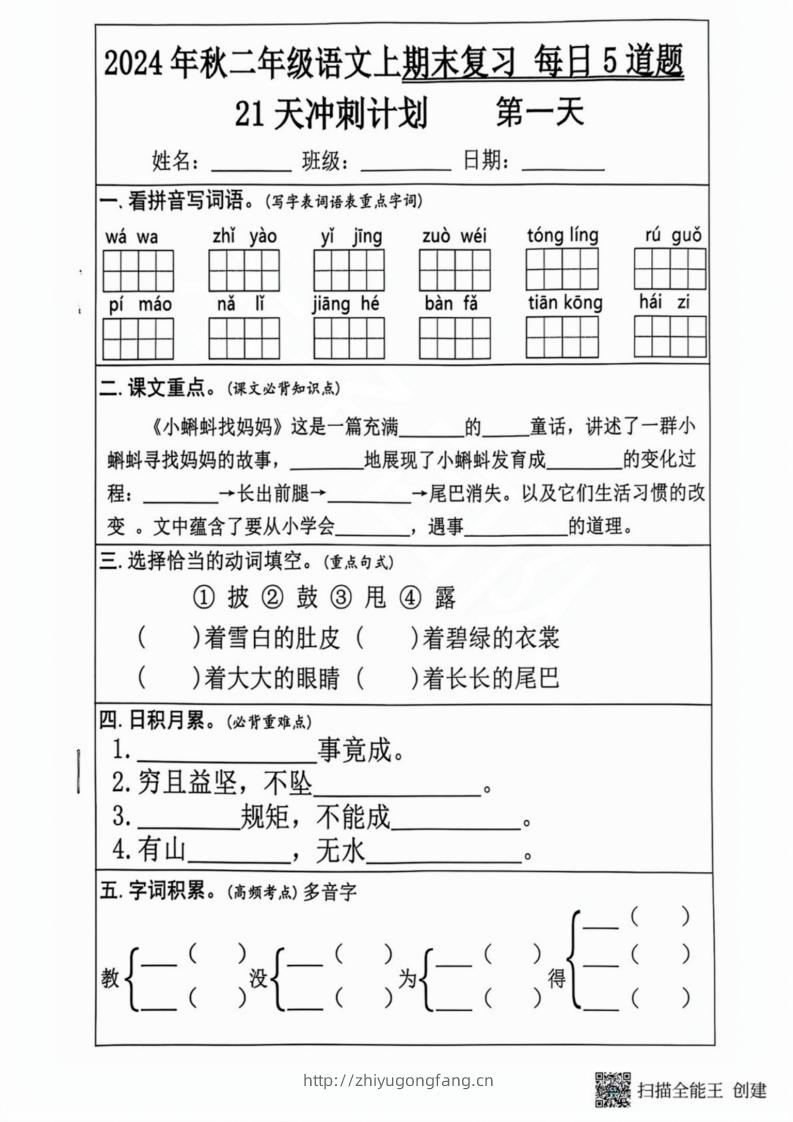 2024年秋二年级语文上期末复习 每日5道题
21天冲刺计划 第一天
姓名：______ 班级：______ 日期：______
一.看拼音写词语。(写字表词语表重点字词)
wá wa zhǐ yào yǐ jīng zuò wéi tóng líng rú guǒ
pí máo nǎ lǐ jiāng hé bàn fǎ tiān kōng hái zi
二.课文重点。(课文必背知识点)
《小蝌蚪找妈妈》这是一篇充满______的____童话，讲述了一群小
蝌蚪寻找妈妈的故事，______地展现了小蝌蚪发育成______的变化过
程：______→长出前腿→______→尾巴消失。以及它们生活习惯的改
变 。文中蕴含了要从小学会______，遇事________的道理。
三.选择恰当的动词填空。(重点句式)
① 披 ② 鼓 ③ 甩 ④ 露
( )着雪白的肚皮 ( )着碧绿的衣裳
( )着大大的眼睛 ( )着长长的尾巴
四.日积月累。(必背重难点)
1.____________事竟成。
2.穷且益坚，不坠____________。
3.________规矩，不能成__________。
4.有山________，无水____________。
五.字词积累。(高频考点)多音字
___ ( )
___ ( ) ___ ( ) ___ ( ) ___ ( )
教 没 为 得
___ ( ) ___ ( ) ___ ( ) ___ ( )
http://zhiyugongfang.cn
扫描全能王 创建